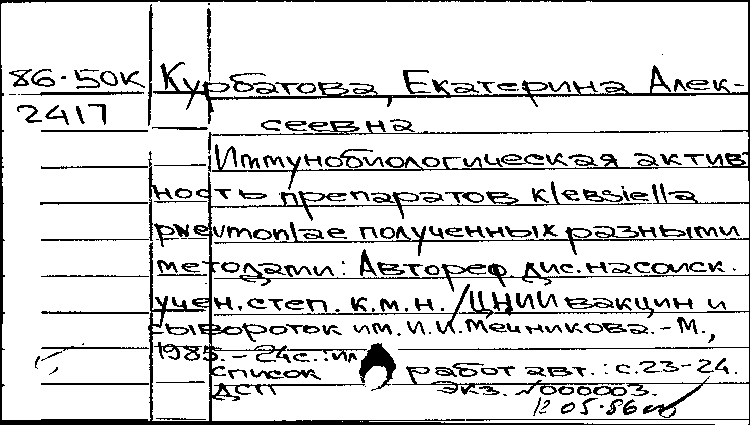 86-50к Курбатова, Екатерина Алек-
2417 сеевна
Иммунобиологическая актив
ность препаратов klebsiella
pneumoniae полученных разными
методами: Автореф. дис. на соиск.
учен. степ. к.м.н. /ЦНИИ вакцин и
сывороток им. И.И. Мечникова. - М.,
1985. - 24с.: ил
Список работ авт.: с.23-24.
ДСП Экз. №000003.
12 05.86